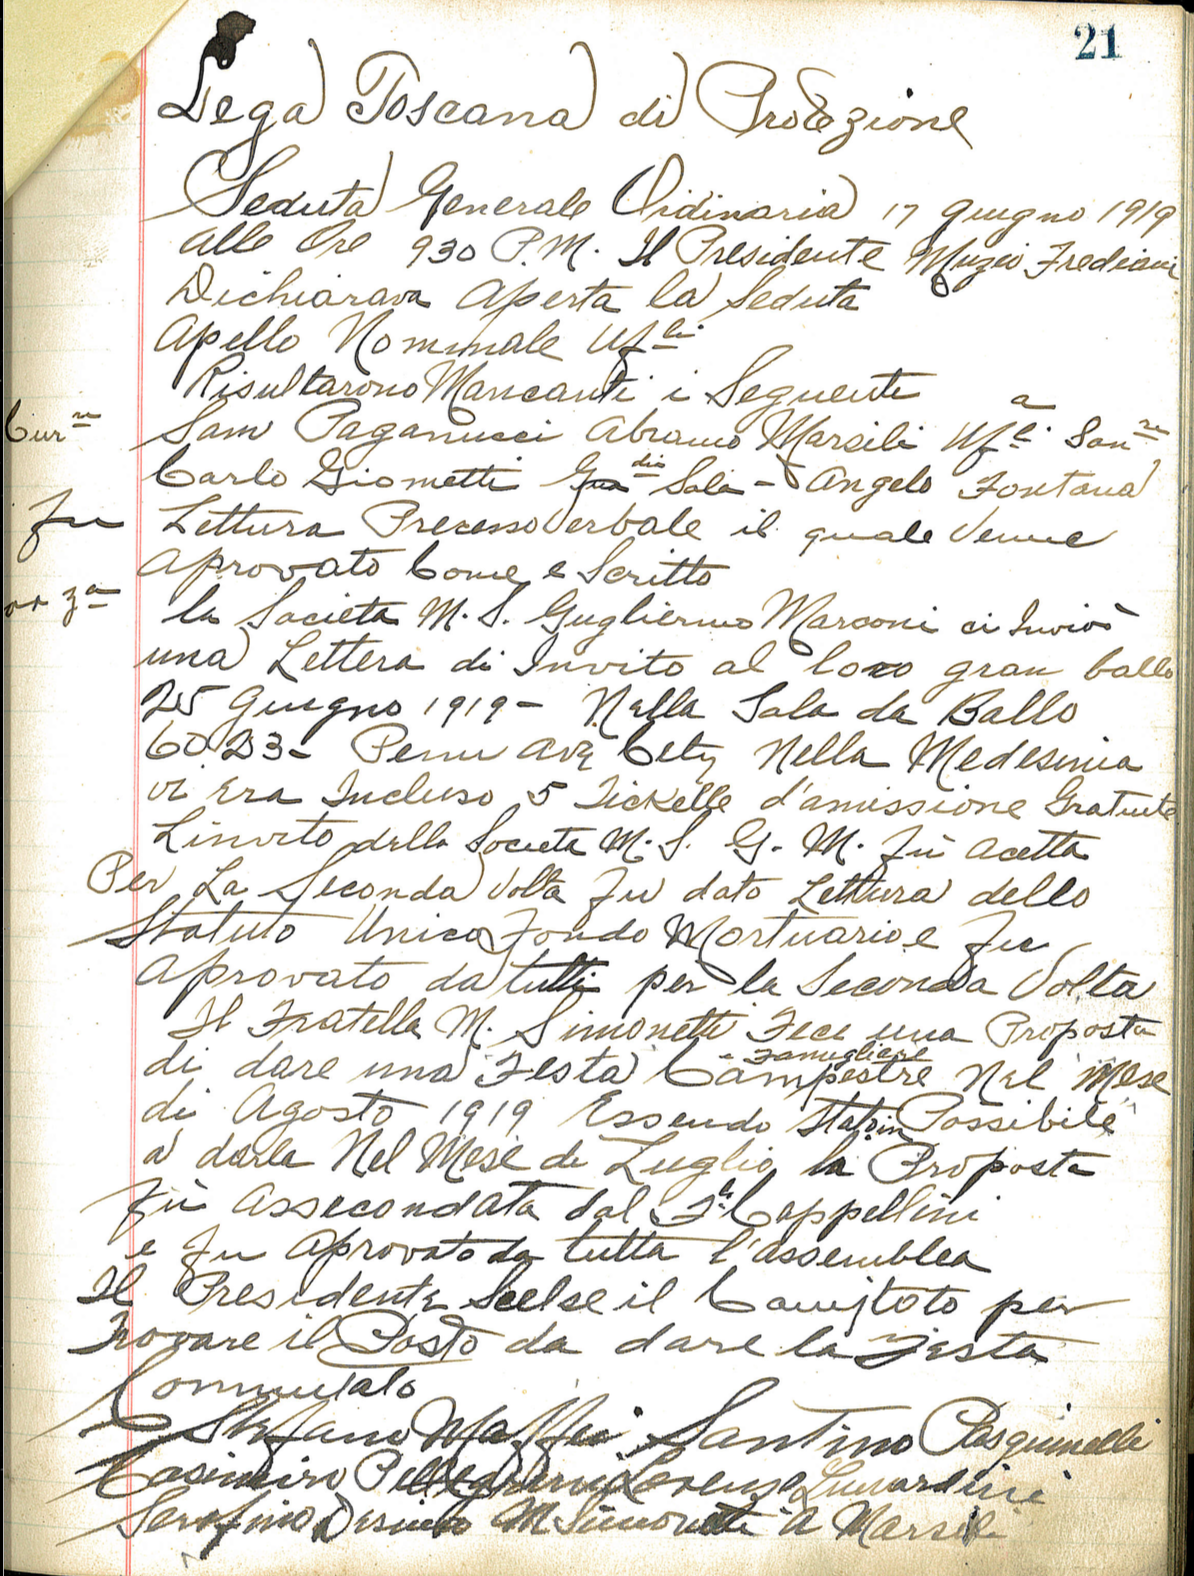 21
Lega Toscana di Protezione
Seduta Generale Ordinaria 17 giugno 1919
alle Ore 930 P.M. Il Presidente Muzio Frediani
Dichiarava Aperta la Seduta
Apello Nominale Uff.li
Risultarono Mancanti i Seguente
Cur.re
Sam Paganucci Abramo Marsili Uff.li a San.re
Carlo Giometti Gua dia Sala - Angelo Fontana
fu
Lettura Precesso Verbale il quale Venne
Aprovato Come e Scritto
za
la Societa M. S. Gugliermo Marconi ci Inviò
una Lettera di Invito al loro gran ballo
25 Giugno 1919 - Nella Sala da Ballo
60. D3 - Penn Ave City Nella Medesima
vi Era Incluso 5 Tickelle d'amissione Gratuite
Linvito della Societa M. S. G. M. fù Acetta
Per La Seconda Volta fu dato Lettura dello
Statuto Unico Fondo Mortuario e fu
Aprovato da tutti per la Seconda Volta
Il Fratello M. Simonetti Fece una Proposta
di dare una Festa Campestre Famigliare Nel Mese
di Agosto 1919 Essendo Stato in Possibile
a darla Nel Mese di Luglio la Proposta
fù Assecondata dal F.lo Cappellini
e fu Aprovato da tutta l'assemblea
Il Presidente Scelse il Comitato per
Trovare il Posto da dare la Festa
Commitato
Stefano Maffei Santino Pasquinelli
Casimiro Pellegrini Lorenzo Lunardini
Serafino M Simonetti A Marsili